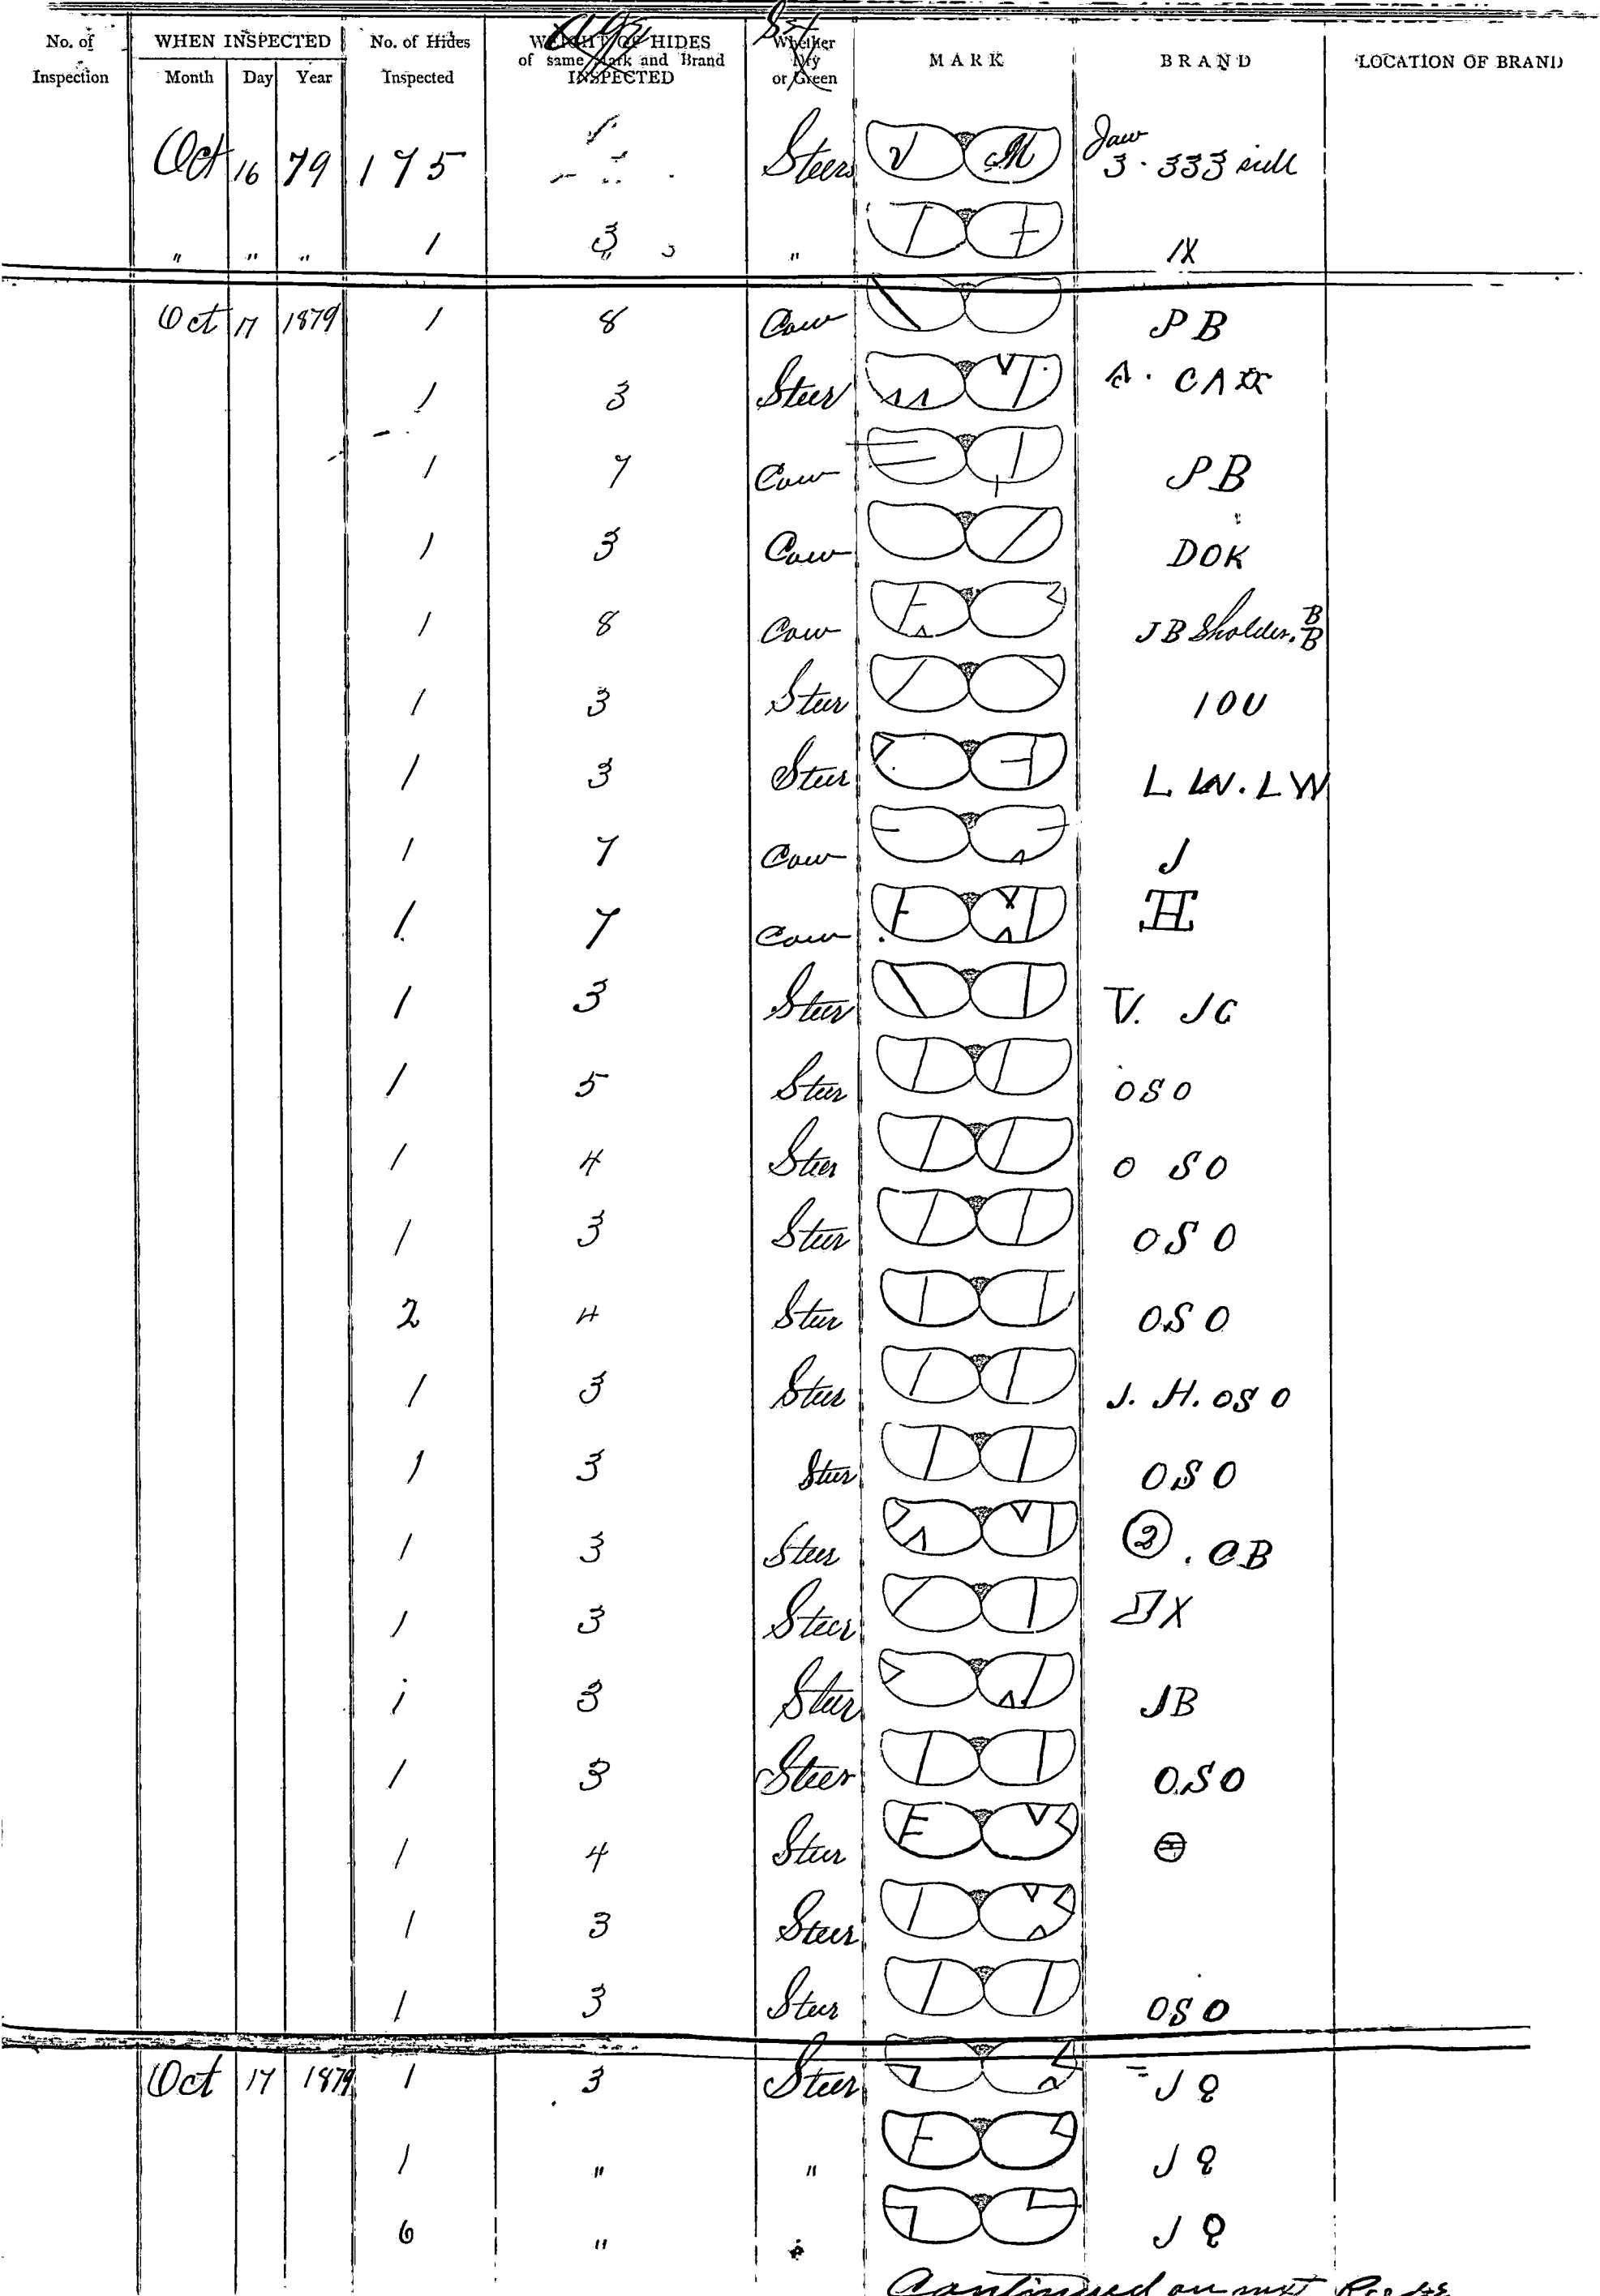 No. of Inspection WHEN INSPECTED Month Day Year No. of Hides Inspected WEIGHT OF HIDES of same Mark and Brand INSPECTED Whether Dry or Green MARK BRAND LOCATION OF BRAND
Age Sex
Oct 16 79 175 Steers V M Jaw 3 . 333 side
" " " 1 3 " IX
Oct 17 1879 1 8 Cow PB
1 3 Steer
1 7 Cow PB
1 3 Cow DOK
1 8 Cow JB Sholder. B B
1 3 Steer IOU
1 3 Steer L W. L W
1 7 Cow J
1 7 Cow H
1 3 Steer JC
1 5 Steer OSO
1 4 Steer O SO
1 3 Steer OSO
2 4 Steer OSO
1 3 Steer J. H. OSO
1 3 Steer OSO
1 3 Steer 2 . CB
1 3 Steer X
1 3 Steer JB
1 3 Steer OSO
1 4 Steer
1 3 Steer
1 3 Steer OSO
Oct 17 1879 1 3 Steer J
1 " " J
6 " " J
Continued on next